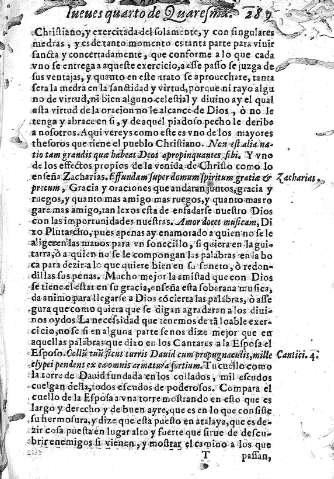 Iueves quarto de Quaresma. 289
Christiano, y exercitada del solamente, y con singulares
medras, y es de tanto momento esta nte parte para vivir
sancta y concertadamente, que conforme a lo que cada
vno se entrega a aqueste exercicio, esse passo se juzga de
sus ventajas, y quanto en este trato se aprouechare, tanta
sera la medra en la sanctidad y virtud, porque ni rayo algu
no de virtud, ni bien alguno celestial y diuino ay el qual
a sta virtud de la oracion no le alcance de Dios, o no le
tenga y abrace en si, y de aquel piadoso pecho le deriba
a nosotros. Aqui vereys como este es vno de los mayores
thesoros que tiene el pueblo Christiano. Non est alia na-
tio tam grandis quæ habeat Deos apropinquantes sibi. Y vno
de los effectos propios de la venida de Christo como lo
enseña Zacharias. Effundam super domum spiritum gratiæ & Zacharias,
precum, Gracia y oraciones que andaran juntos, gracia y
ruegos, y quanto mas amigo mas ruegos, y quanto mas ro
gare mas amigo, tan lexos esta de enfadarse nuestro Dios
con las importunidades nuestras. Amor docet musicam, Di
xo Plutarcho, pues apenas ay enamorado a quien no se le
aligeren las manos para vn sonecillo, si quiera en la gui-
tarra, ò a quien no se le compongan las palabras en la bo
ca para dezir a lo que quiere bien en su soneto, ò redon-
dillas sus penas. Mucho mejor la amistad que con Dios
se tiene el estar en su gracia, enseña esta soberana musica,
da animo para llegarse a Dios concierta las palabras, ò asse
gura que como quiera que se digan agradaran a los diui-
nos oydos. La necessidad que tenemos de tã loable exer-
cicio, no se si en alguna parte se nos dize mejor que en
aquellas palabras que dixo en los Cantares a la Esposa el
Esposo. Collum tuũ sicut turris Dauid cum propugnaculis, mille Cantici. 4.
clypei pendent ex ea omnis armatura fortium. Tu cuello como
la torre de Dauid fundada en los collados, mil escudos
cuelgan della, todos escudos de poderosos. Compara el
cuello de la Esposa a vna torre mostrando en esto que es
largo y derecho y de buen ayre, que es en lo que consiste
su hermosura, y dize que esta puesto en atalaya, que es de-
zir cosa puesta en lugar alto y fuerte que sirue de descu-
brir enemigos si vienen, y mostrar el camino a los que
T passan,